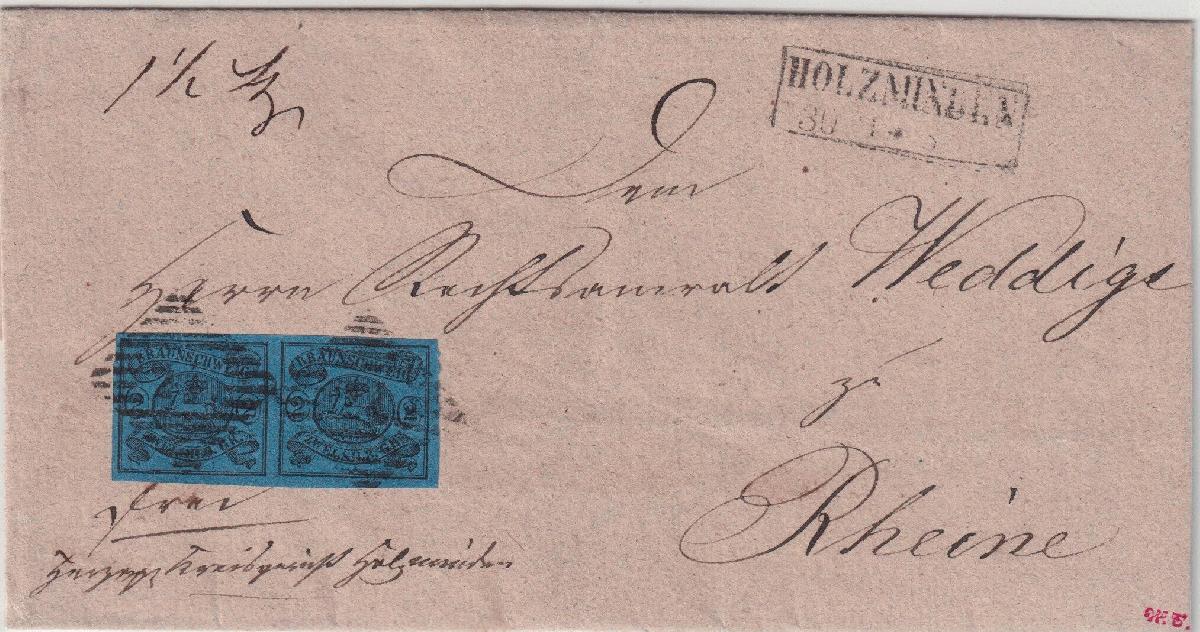 1 1/2
HOLZMINDEN
30
Dem
Herrn Rechtsanwalt Weddige
zu
Rheine
BRAUNSCHWEIG BRAUNSCHWEIG
2 2 2
ZWEI SILB. GR.
frei
Herzogl. Kreisgericht Holzminden